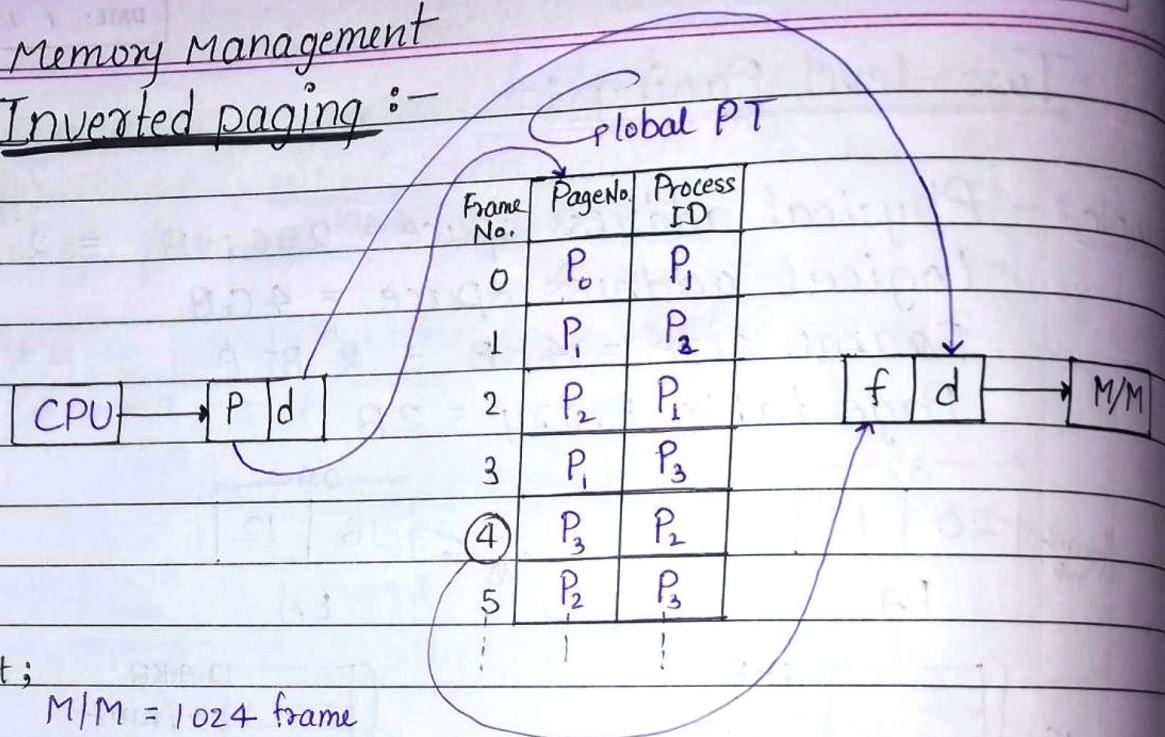 Memory Management
Inverted paging :-
global PT
Frame No. PageNo. Process ID
0 P₀ P₁
1 P₁ P₂
CPU P d 2 P₂ P₁ f d M/M
3 P₁ P₃
4 P₃ P₂
5 P₂ P₃
t;
M/M = 1024 frame